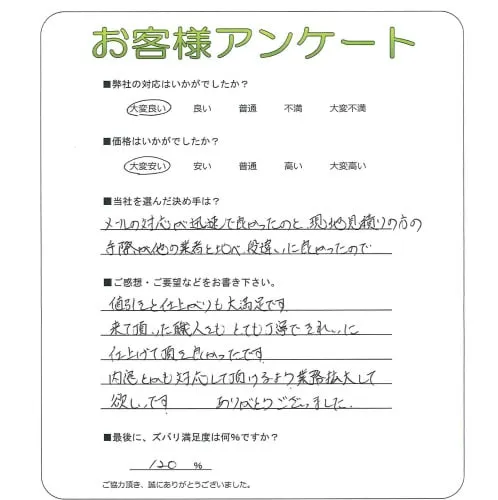 お客様アンケート
■弊社の対応はいかがでしたか？
大変良い 良い 普通 不満 大変不満
■価格はいかがでしたか？
大変安い 安い 普通 高い 大変高い
■当社を選んだ決め手は？
メールの対応が迅速で良かったのと、現地見積りの方の
手際が他の業者と比べ段違いに良かったので
■ご感想・ご要望などをお書き下さい。
値引きと仕上がりも大満足です
来て頂いた職人さんも とても丁寧で きれいに
仕上げて頂き良かったです
内窓とかも対応して頂けるよう業務拡大して
欲しいです ありがとうございました.
■最後に、ズバリ満足度は何%ですか？
120 %
ご協力頂き、誠にありがとうございました。